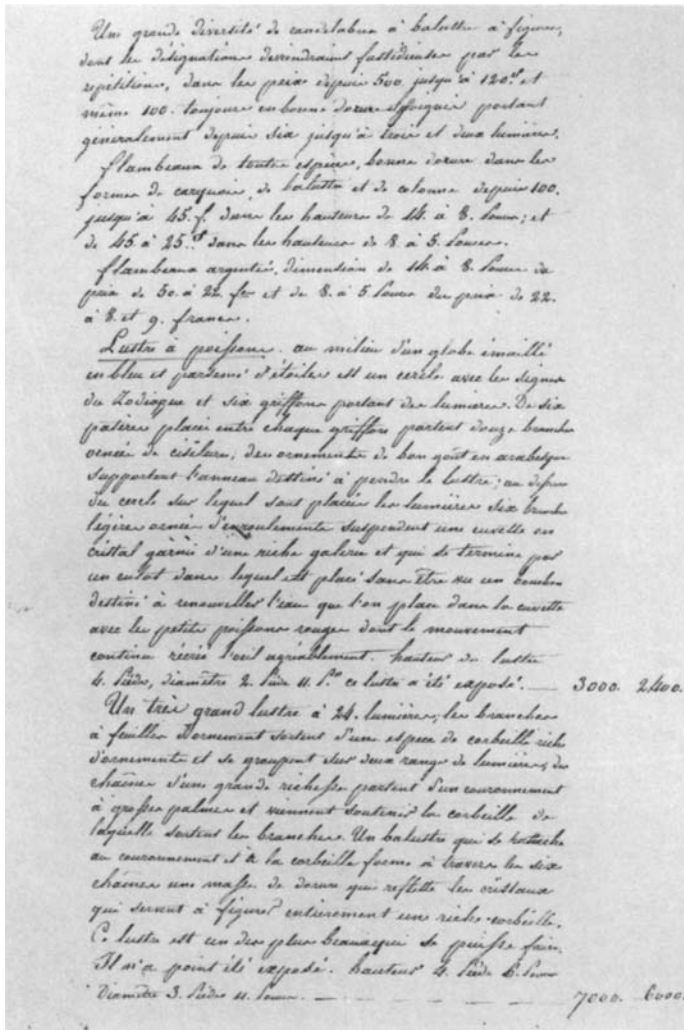 Une grande diversité de candelabres à balustre à figures,
dont les désignations deviendraient fastidieuses par les
répétitions, dans les prix depuis 500 jusqu'à 120.f et
même 100. toujours en bonne dorure portant
généralement depuis six jusqu'à trois et deux lumières.
flambeaux de toutes espèces, bonne dorure dans les
formes de carquois, de balustre et de colonne depuis 100.
jusqu'à 45. f. dans les hauteurs de 14. à 8. pouces; et
de 45. à 25.f dans les hauteurs de 8. à 5. pouces.
flambeaux argentés, dimention de 14. à 8. pouces du
prix de 50. à 22. fcs et de 8. à 5 pouces du prix de 22.
à 8. et 9. francs.
Lustre à poissons. au milieu d'un globe émaillé
en bleu et parsemé d'étoiles est un cercle avec les signes
du Zodiaque et six griffons portant des lumières. De six
patères placées entre chaque griffon partent douze branches
ornées de ciselure; des ornements de bon goût en arabesque
supportent l'anneau destiné à pendre le lustre; au dessous
du cercle sur lequel sont placées les lumières six branches
légères ornées d'enroulements suspendent une cuvette en
cristal garnie d'une riche galerie et qui se termine par
un culot dans lequel est placé sans être vu un bouchon
destiné à renouveller l'eau que l'on place dans la cuvette
avec les petits poissons rouges dont le mouvement
continu récrée l'oeil agréablement. hauteur du lustre
4. pieds, diamètre 2. pieds 11. po ce lustre a été exposé. 3000. 2400.
Un très grand lustre à 24. lumières; les branches
à feuilles d'ornement sortent d'une espèce de corbeille riche
d'ornements et se groupent sur deux rangs de lumières; des
chaînes d'une grande richesse partent d'un couronnement
à grosses palmes et viennent soutenir la corbeille de
laquelle sortent les branches. Un balustre qui se rattache
au couronnement et à la corbeille forme à travers les six
chaînes une masse de dorure qui reflette les cristaux
qui servent à figurer entièrement une riche corbeille.
Ce lustre est un des plus beaux qui se puisse faire.
Il n'a point été exposé. hauteur 4. pieds 6. pouces
Diamètre 3. pieds 11. pouces. 7000. 6000.